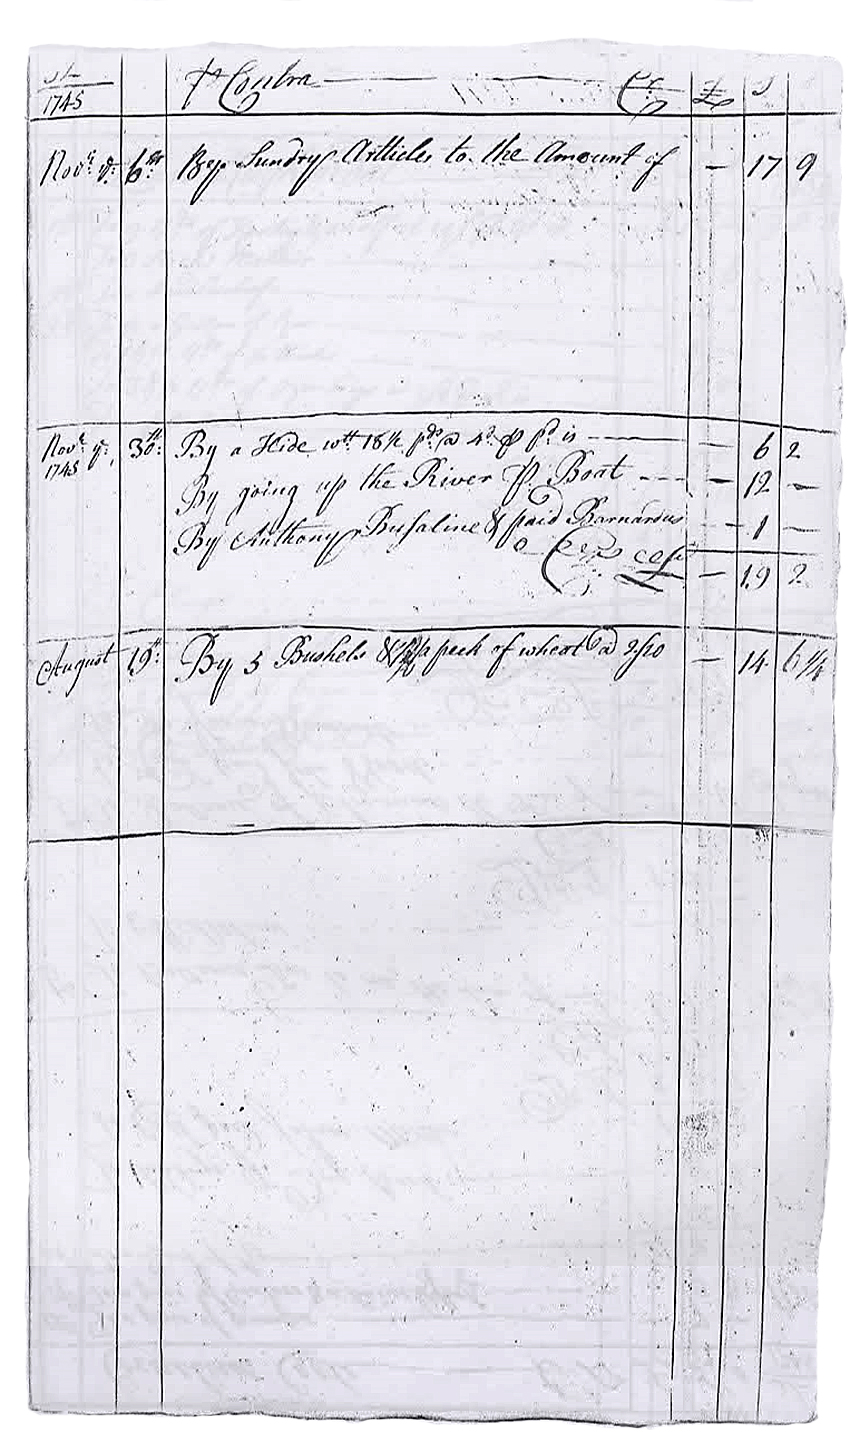 1745 Pr Contra Cr £ S
Novr ye 6th By Sundry Articles to the Amount of — 17 9
Novr ye 30th By a Hide wtt 18½ pds @ 4d P pd is — 6 2
1745 By going up the River P Boat — 12 —
By Anthony & paid Barnardus — 1 —
£ — 19 2
August 19th By 5 Bushels & a peck of wheat @ 2/10 — 14 6¼